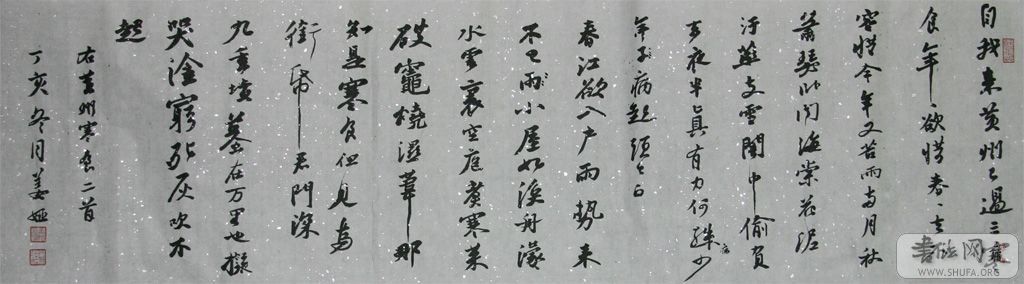 自我来黄州已過三寒
食年々欲惜春々去
容惜今年又苦雨兩月秋
蕭瑟卧聞海棠花泥
汙燕支雪闇中偷負
去夜半真有力何殊少
年子病起頭已白
春江欲入户雨勢来
不已雨小屋如漁舟濛々
水雲裏空庖煮寒菜
破竈燒濕葦那
知是寒食但見烏
銜帋君門深
九重墳墓在万里也擬
哭塗窮死灰吹不
起
右黄州寒食二首
丁亥冬月姜娅
书法网
WWW.SHUFA.ORG